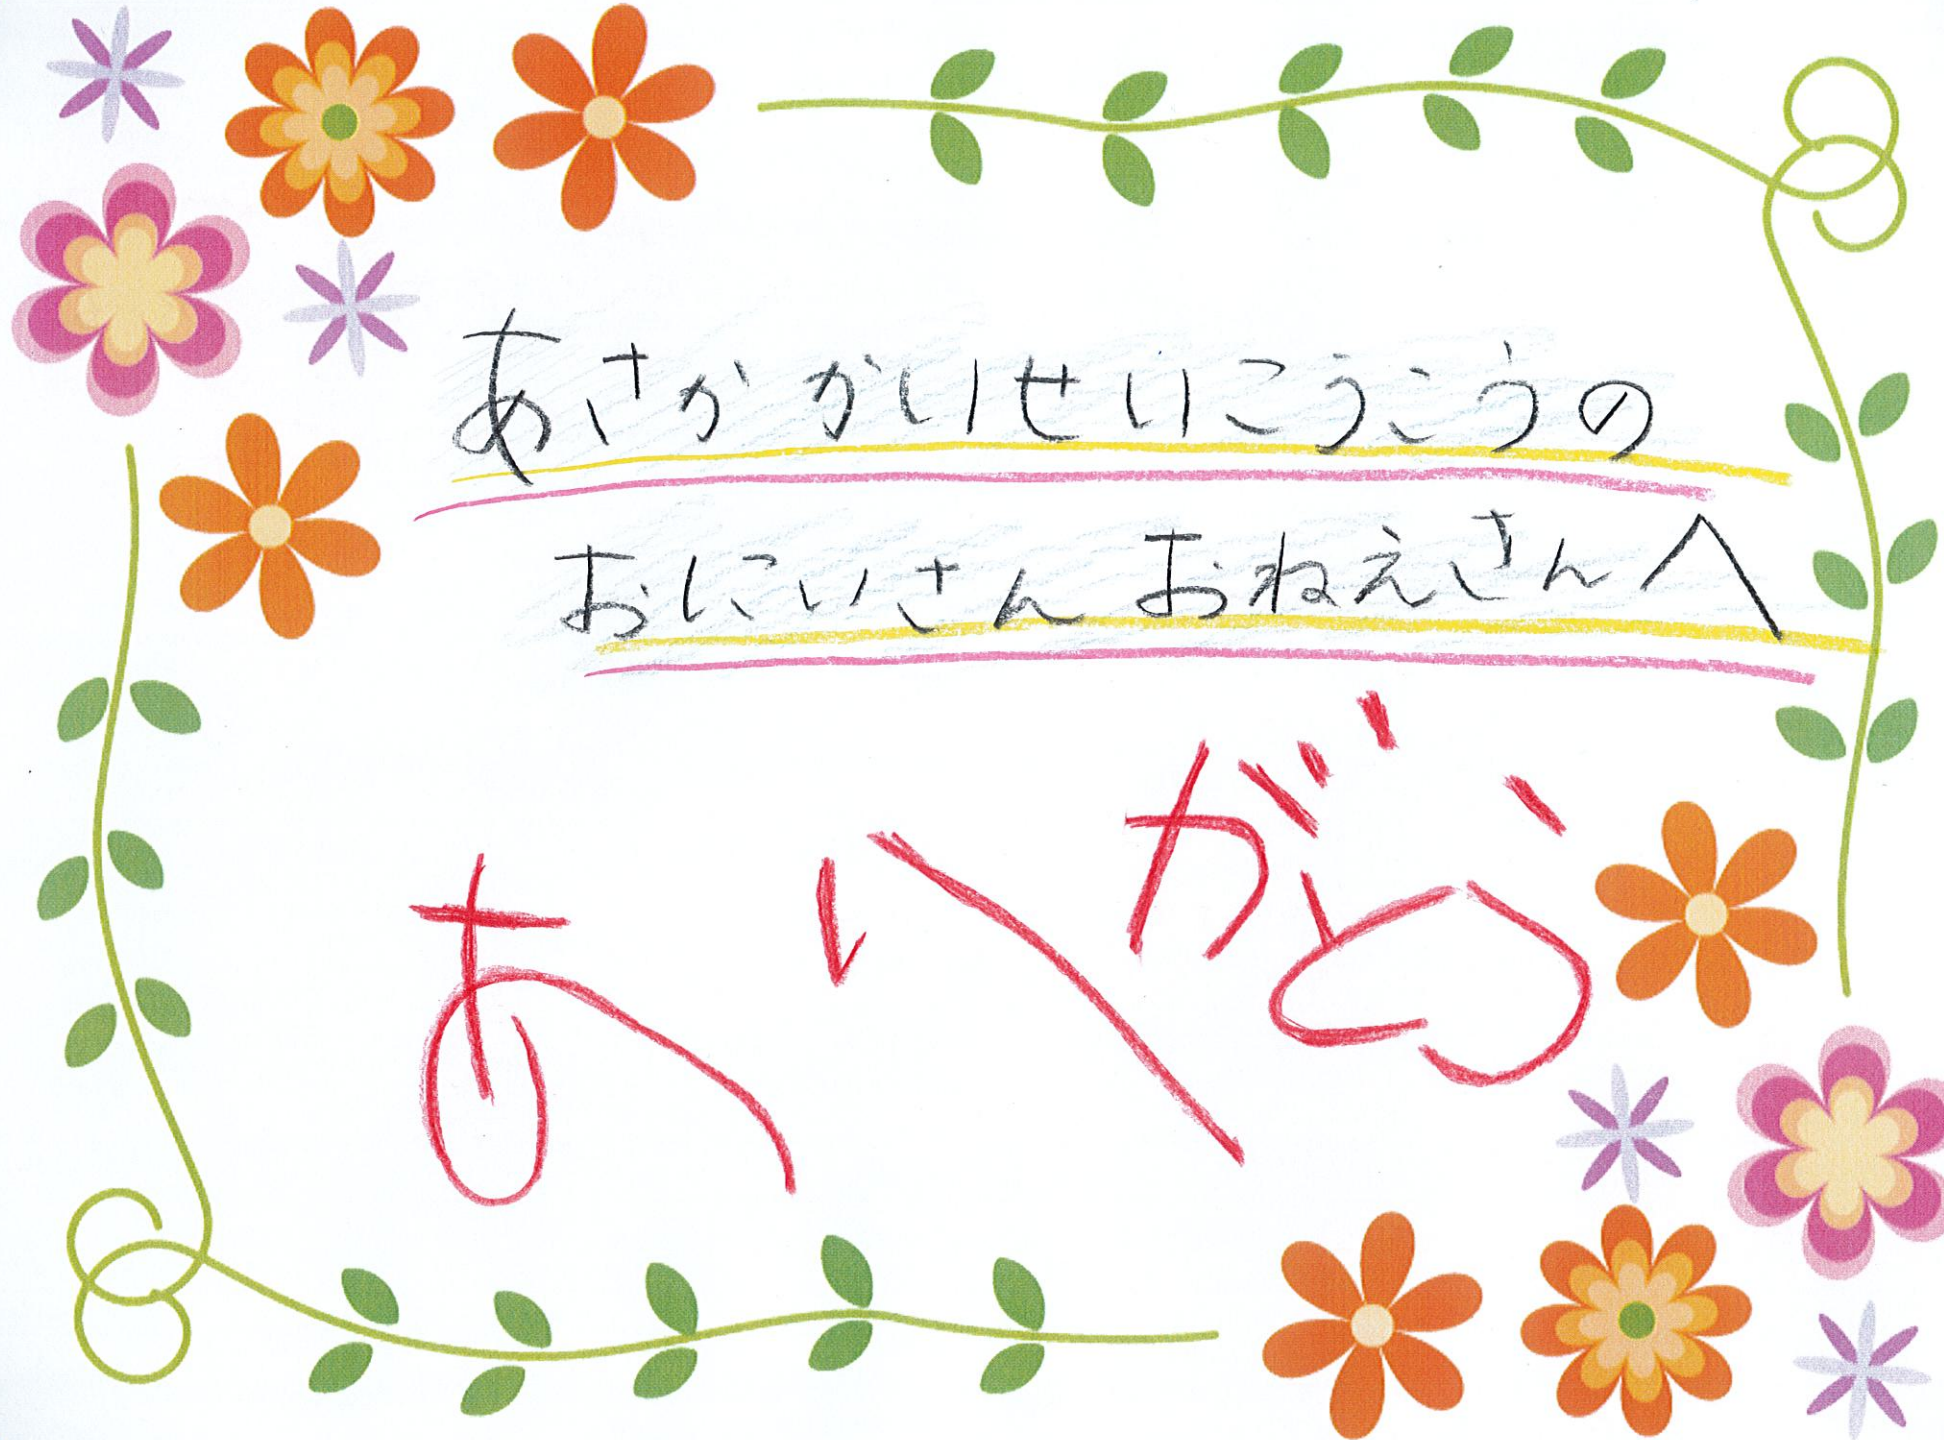 あさかかいせいこうこうの
おにいさんおねえさんへ
ありがとう